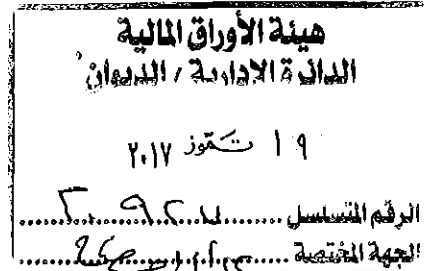 هيئة الأوراق المالية
الدائرة الإدارية / الديوان
١٩ تموز ٢٠١٧
الرقم المتسلسل
الجهة المختصة